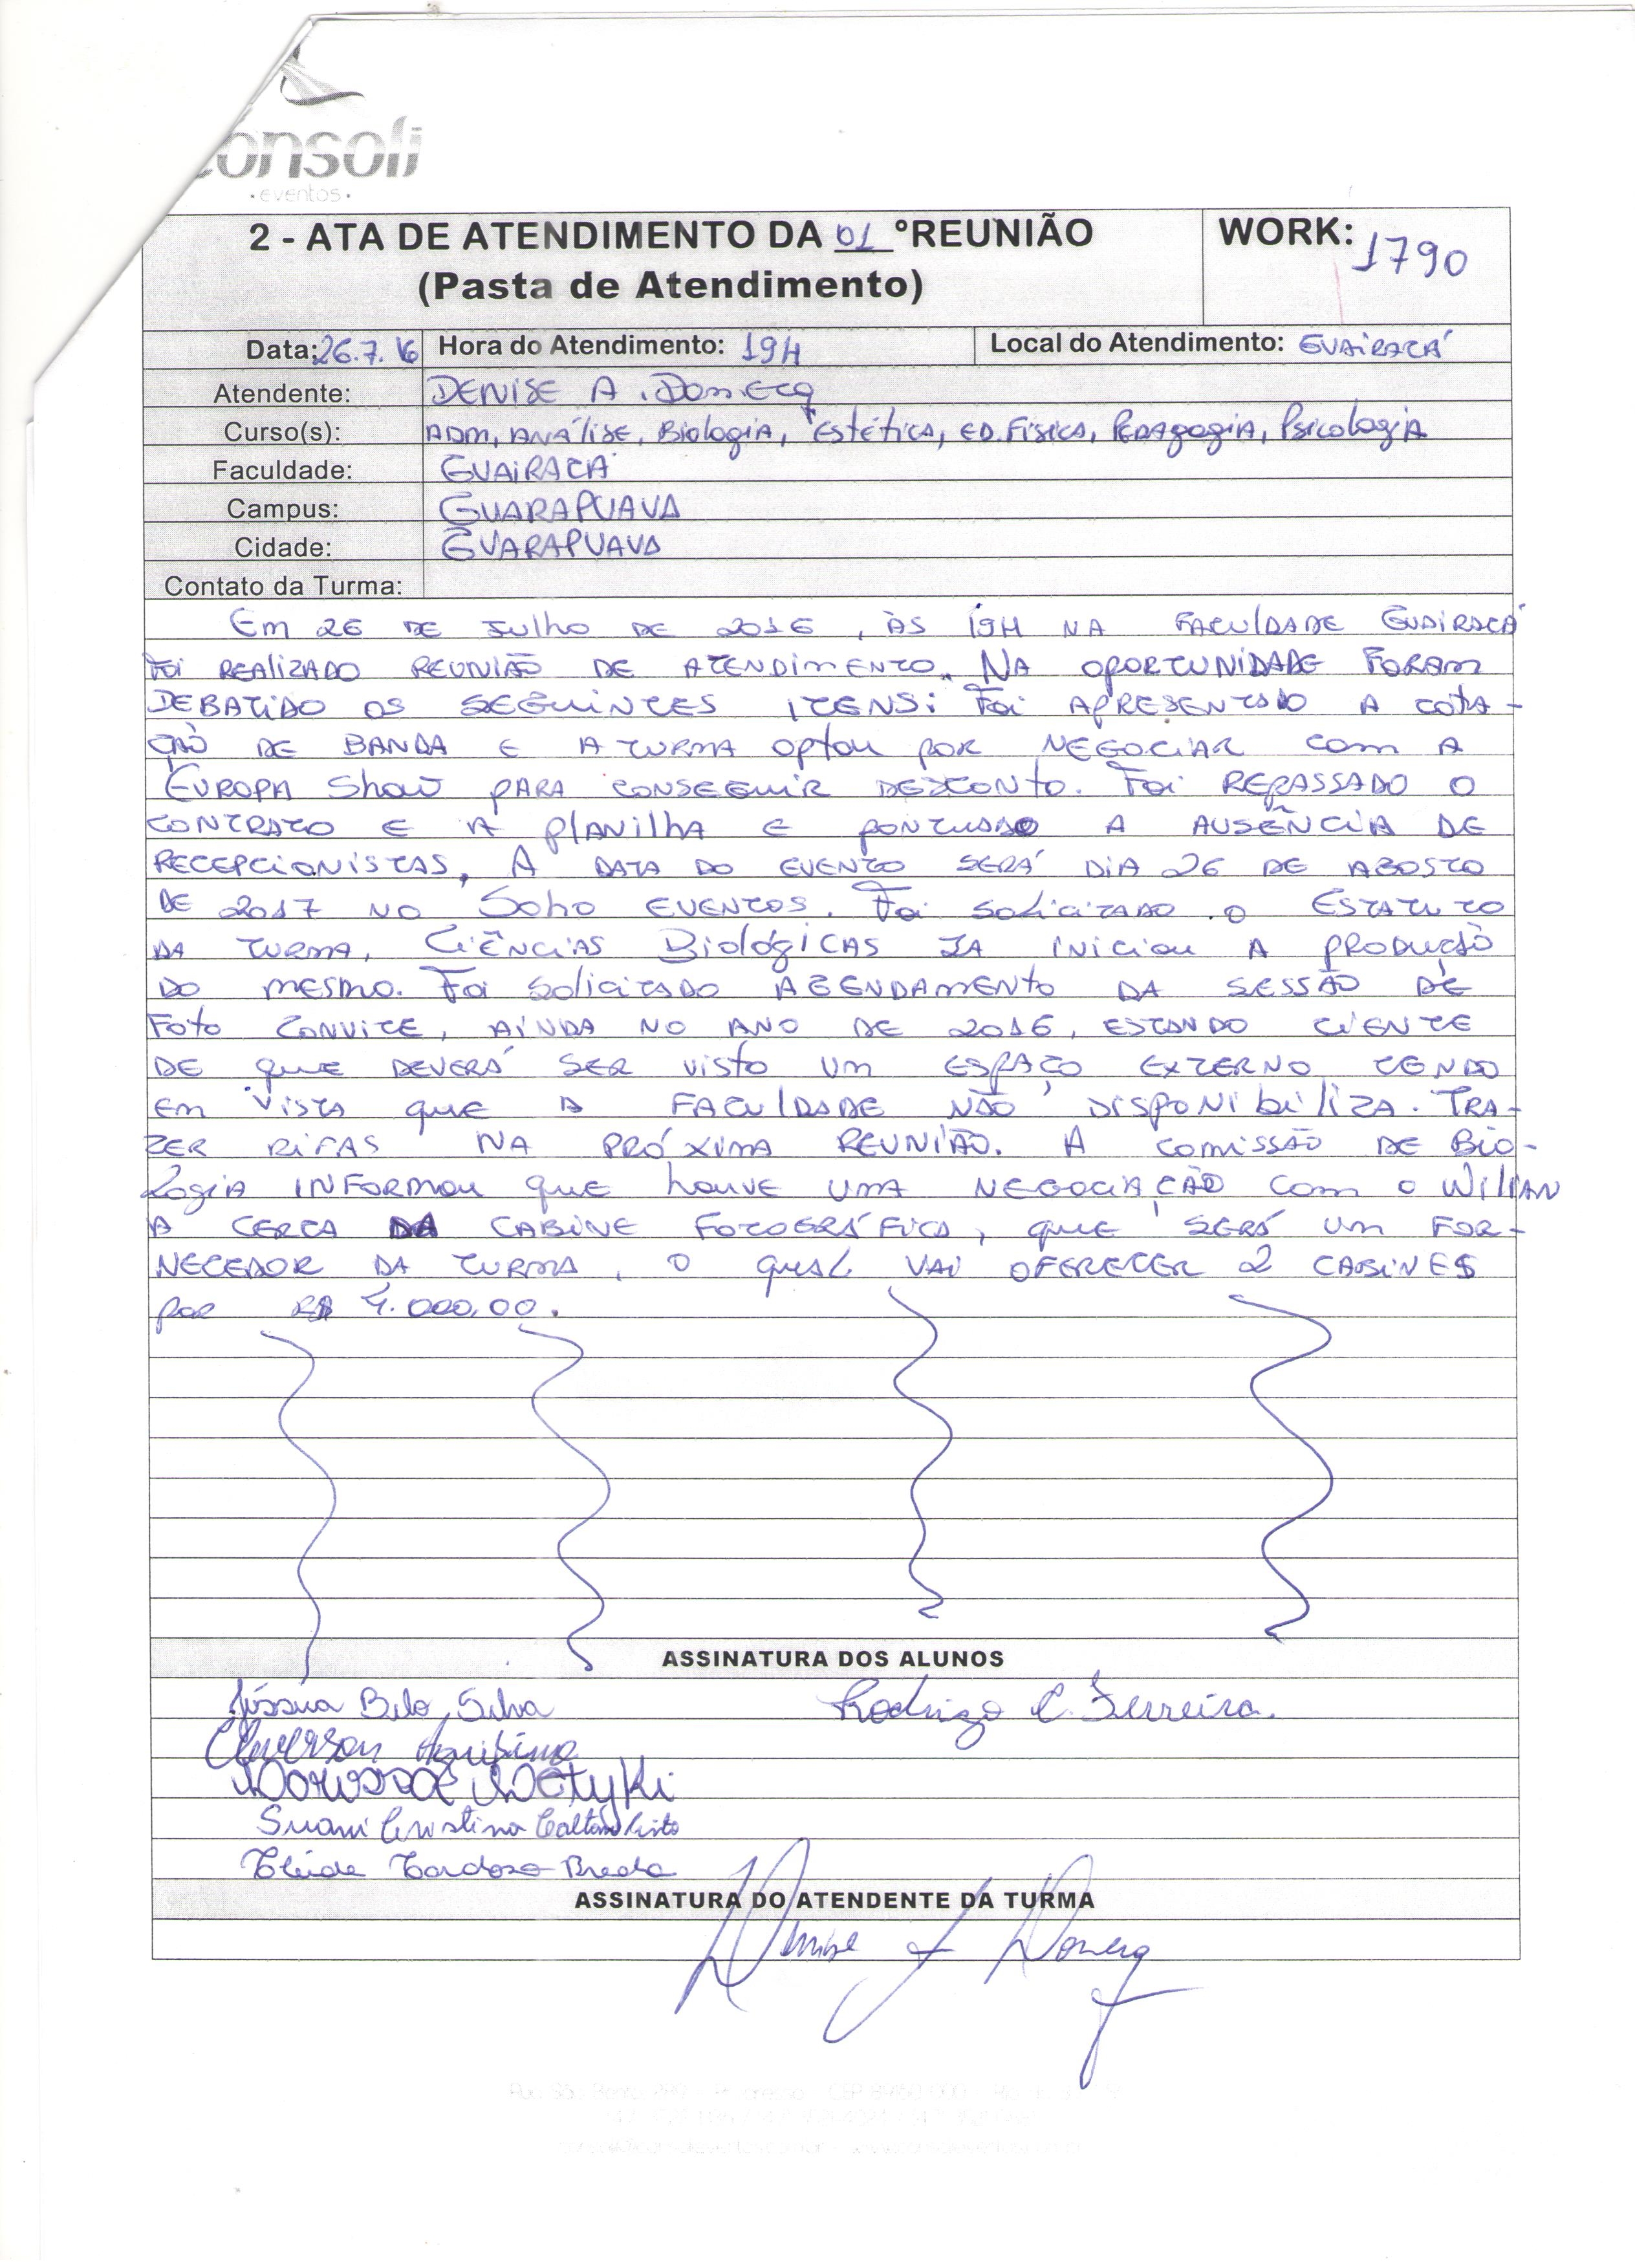 onsoli
• eventos •
2 - ATA DE ATENDIMENTO DA 01 °REUNIÃO
(Pasta de Atendimento)
WORK: 1790
Data: 26.7.16 Hora do Atendimento: 19H Local do Atendimento: GUAIRACÁ
Atendente: DENISE A. Domecq
Curso(s): ADM, ANÁLISE, Biologia, Estética, ED. Física, Pedagogia, Psicologia
Faculdade: GUAIRACÁ
Campus: GUARAPUAVA
Cidade: GUARAPUAVA
Contato da Turma:
Em 26 DE Julho DE 2016, ÀS 19H NA FACULDADE GUAIRACÁ
Foi REALIZADO REUNIÃO DE ATENDIMENTO. NA OPORTUNIDADE FORAM
DEBATIDO OS SEGUINTES ITENS: Foi APRESENTADO A COTA-
ÇÃO DE BANDA E A TURMA optou por NEGOCIAR com A
EUROPA Show PARA CONSEGUIR DESCONTO. Foi REPASSADO O
CONTRATO E A PLANILHA E PONTUADO A AUSÊNCIA DE
RECEPCIONISTAS, A DATA DO EVENTO SERÁ DIA 26 DE AGOSTO
DE 2017 NO Soho EVENTOS. Foi Solicitado o ESTATUTO
DA TURMA, CIÊNCIAS BIOLÓGICAS JA INICIOU A PRODUÇÃO
DO MESMO. Foi Solicitado AGENDAMENTO DA SESSÃO DE
FOTO CONVITE, AINDA NO ANO DE 2016, ESTANDO CIENTE
DE que DEVERÁ SER VISTO UM ESPAÇO EXTERNO TENDO
EM VISTA que A FACULDADE NÃO DISPONIBILIZA. TRA-
ZER RIFAS NA PRÓXIMA REUNIÃO. A COMISSÃO DE BIO-
LOGIA INFORMOU QUE houve UMA NEGOCIAÇÃO com o WILIAN
A CERCA DA CABINE FOTOGRÁFICA, que SERÁ UM FOR-
NECEDOR DA TURMA, O QUAL VAI OFERECER 2 CABINES
por R$ 4.000,00.
ASSINATURA DOS ALUNOS
Jéssica Belo Silva Rodrigo C. Ferreira.
Suani Cristina
Cleide Cardoso Breda
ASSINATURA DO ATENDENTE DA TURMA
Denise A Domecq